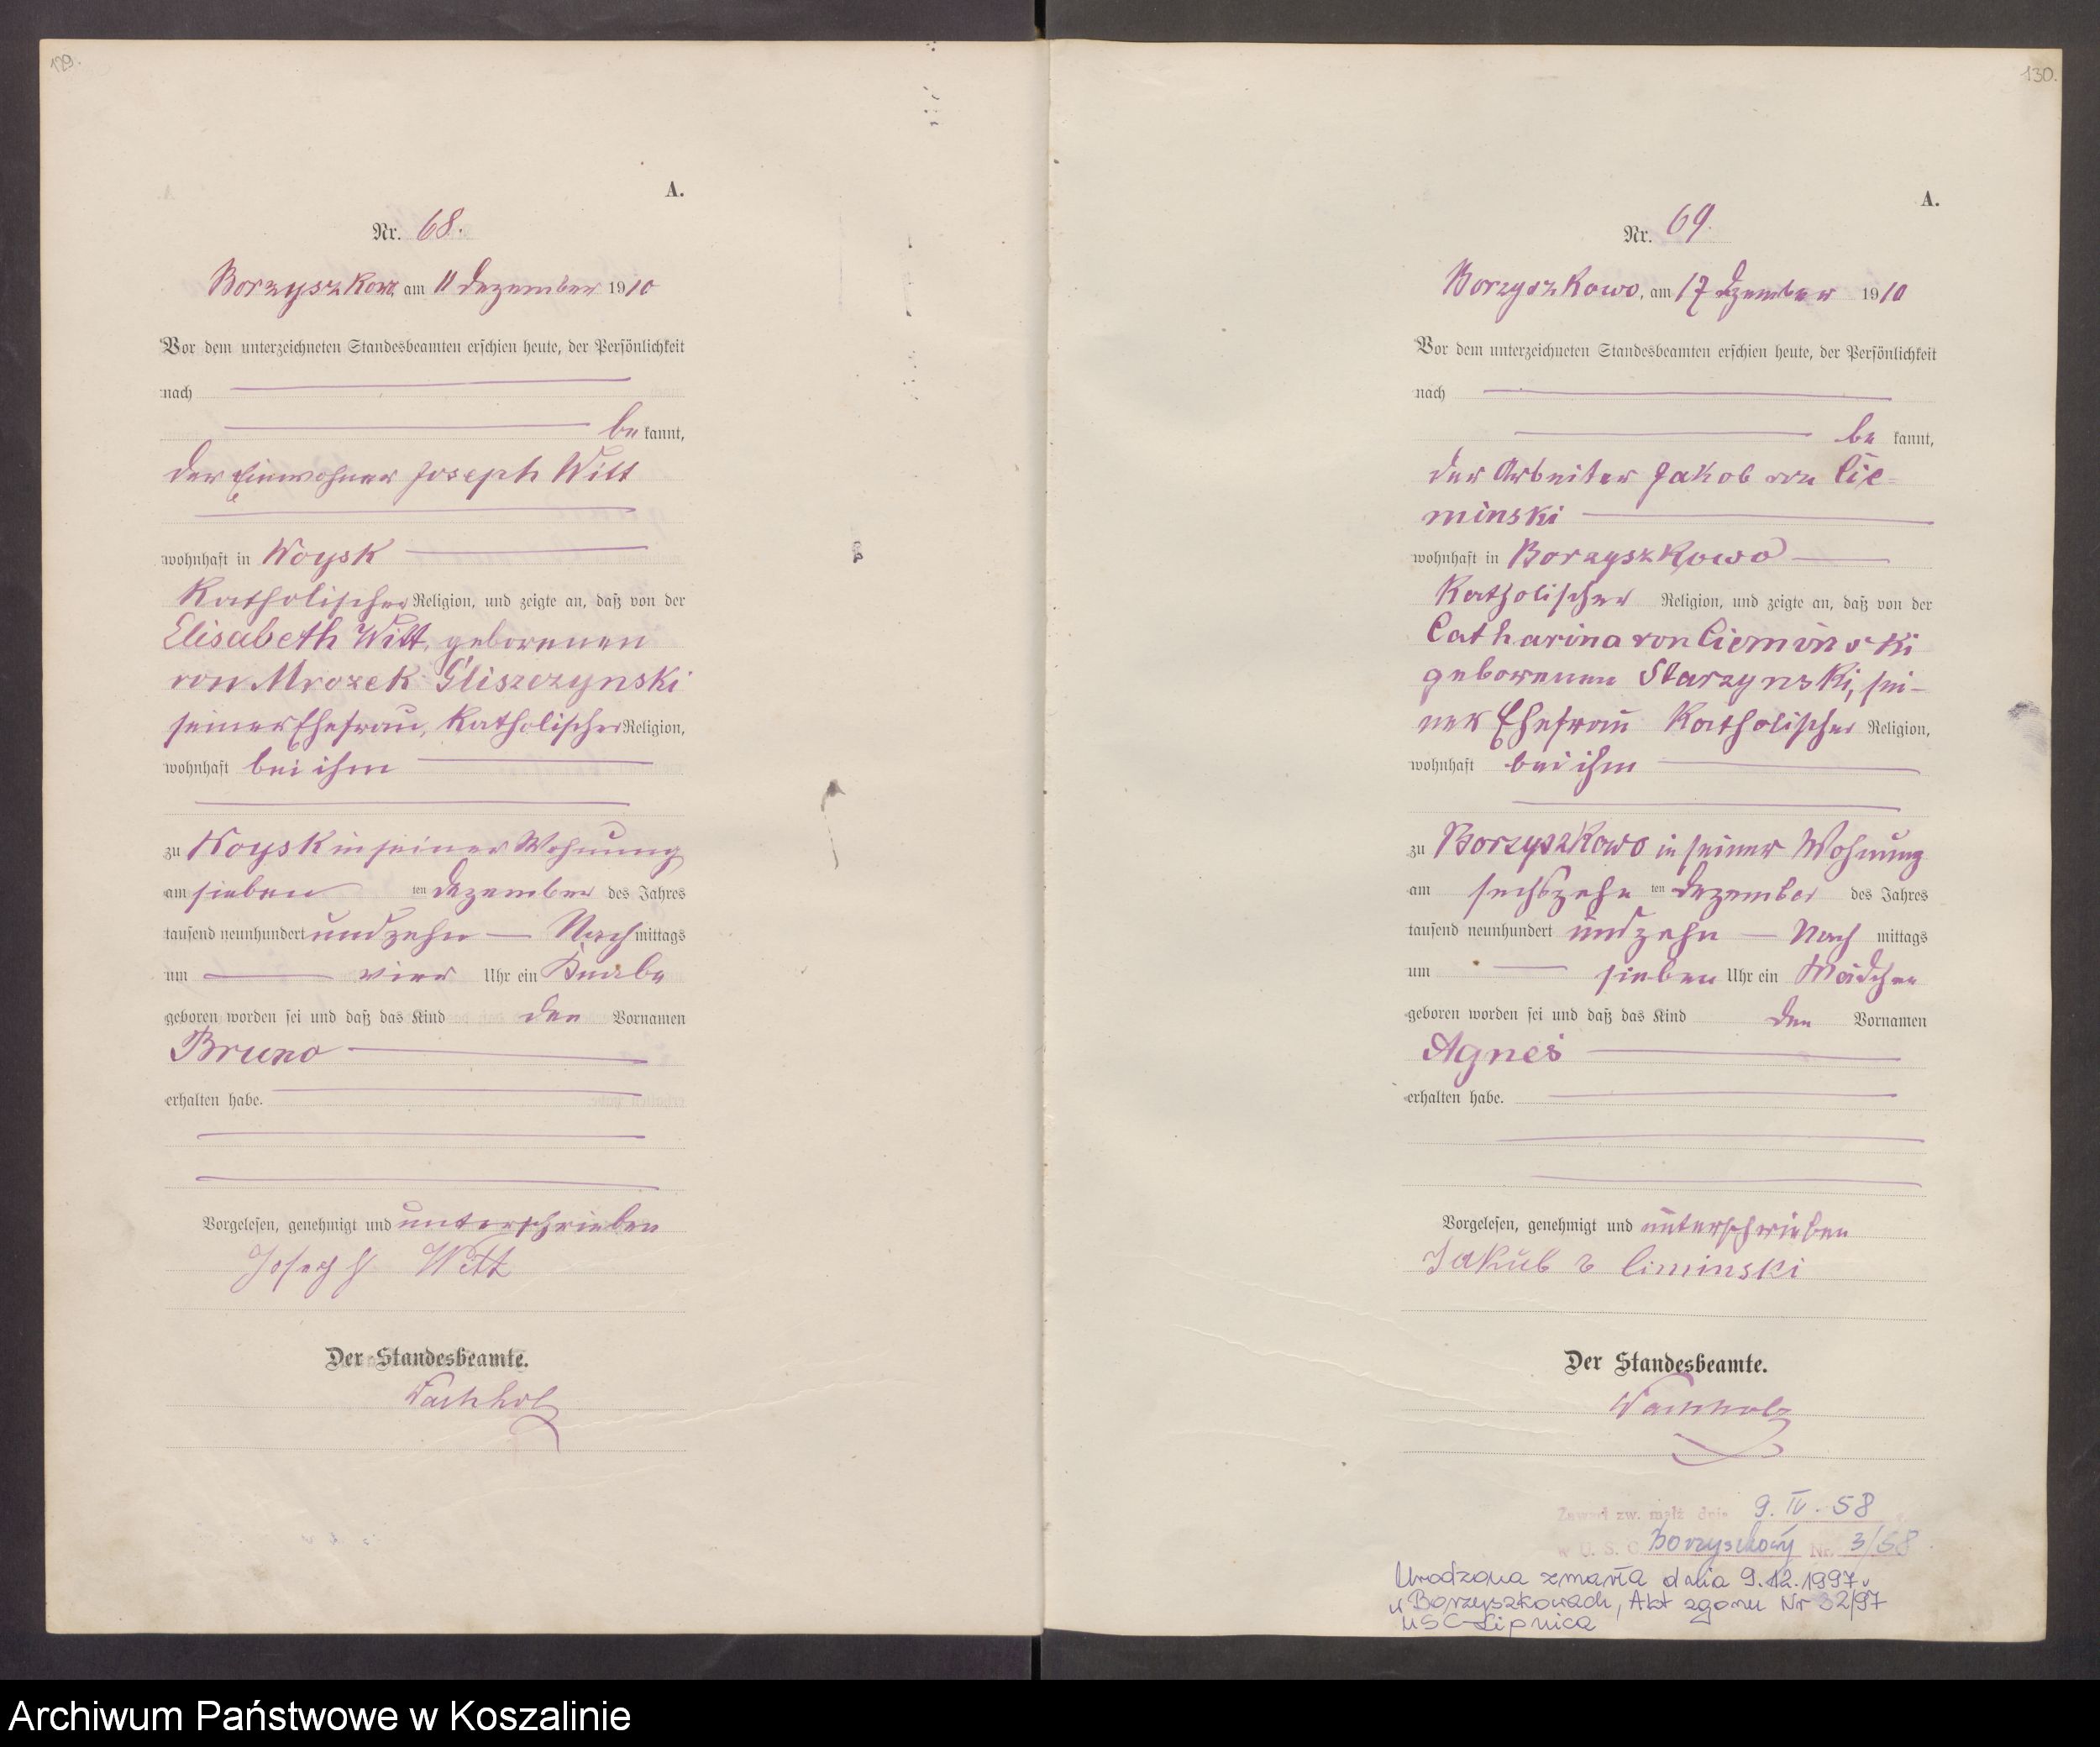 129.
A.
Nr. 68.
Borzyszkowo, am 11 Dezember 1910
Vor dem unterzeichneten Standesbeamten erschien heute, der Persönlichkeit
nach
be kannt,
der Einwohner Joseph Witt
wohnhaft in Woysk
Katholischer Religion, und zeigte an, daß von der
Elisabeth Witt, geborenen
von Mrozek Gliszczynski
seiner Ehefrau, Katholischer Religion,
wohnhaft bei ihm
zu Woysk in seiner Wohnung
am sieben ten Dezember des Jahres
tausend neunhundert und zehn — Nach mittags
um — vier Uhr ein Knabe
geboren worden sei und daß das Kind den Vornamen
Bruno
erhalten habe.
Vorgelesen, genehmigt und unterschrieben
Joseph Witt
Der Standesbeamte.
Wachholz
130.
A.
Nr. 69.
Borzyszkowo, am 17 Dezember 1910
Vor dem unterzeichneten Standesbeamten erschien heute, der Persönlichkeit
nach
be kannt,
der Arbeiter Jakob von Cie=
minski
wohnhaft in Borzyszkowo
Katholischer Religion, und zeigte an, daß von der
Catharina von Cieminski
geborenen Starzynski, sei-
ner Ehefrau Katholischer Religion,
wohnhaft bei ihm
zu Borzyszkowo in seiner Wohnung
am sechszehn ten Dezember des Jahres
tausend neunhundert und zehn — Nach mittags
um — sieben Uhr ein Mädchen
geboren worden sei und daß das Kind den Vornamen
Agnes
erhalten habe.
Vorgelesen, genehmigt und unterschrieben
Jakub v Ciminski
Der Standesbeamte.
Wachholz
Zawarł zw. małż dnia 9. IV. 58
w U. S. C. Borzyszkowy Nr. 3/58
Urodzona zmarła dnia 9.12.1997r
w Borzyszkowach, Akt zgonu Nr 32/97
USC Lipnica
Archiwum Państwowe w Koszalinie